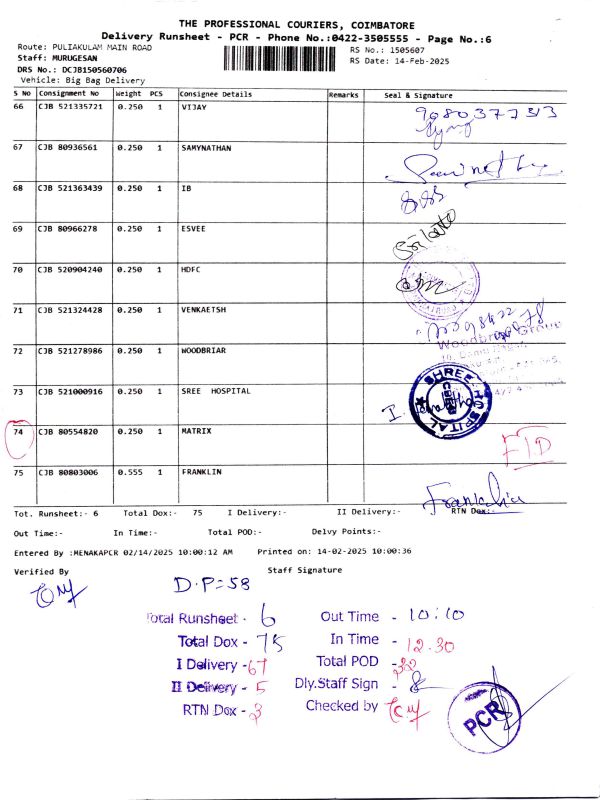 THE PROFESSIONAL COURIERS, COIMBATORE
Delivery Runsheet - PCR - Phone No.:0422-3505555 - Page No.:6
Route: PULIAKULAM MAIN ROAD
RS No.: 1505607
Staff: MURUGESAN
RS Date: 14-Feb-2025
DRS No.: DCJB150560706
Vehicle: Big Bag Delivery
S No Consignment No Weight PCS Consignee Details Remarks Seal & Signature
66 CJB 521335721 0.250 1 VIJAY 9080377313
67 CJB 80936561 0.250 1 SAMYNATHAN
68 CJB 521363439 0.250 1 IB
69 CJB 80966278 0.250 1 ESVEE
70 CJB 520904240 0.250 1 HDFC
71 CJB 521324428 0.250 1 VENKAETSH
72 CJB 521278986 0.250 1 WOODBRIAR Woodbriar Group
73 CJB 521000916 0.250 1 SREE HOSPITAL SHREE HOSPITAL
74 CJB 80554820 0.250 1 MATRIX
75 CJB 80803006 0.555 1 FRANKLIN
Tot. Runsheet:- 6 Total Dox:- 75 I Delivery:- II Delivery:- RTN Dox:-
Out Time:- In Time:- Total POD:- Delvy Points:-
Entered By :MENAKAPCR 02/14/2025 10:00:12 AM Printed on: 14-02-2025 10:00:36
Verified By Staff Signature
D.P=58
Total Runsheet - 6 Out Time - 10:10
Total Dox - 75 In Time - 12.30
I Delivery - 67 Total POD -
II Delivery - 5 Dly.Staff Sign -
RTN Dox - 3 Checked by
PCR